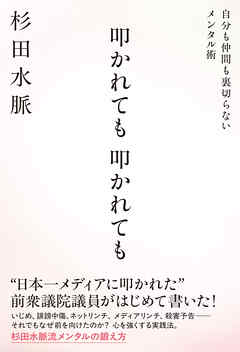 自分も仲間も裏切らない
メンタル術
叩かれても 叩かれても
杉田水脈
“日本一メディアに叩かれた”
前衆議院議員がはじめて書いた！
いじめ、誹謗中傷、ネットリンチ、メディアリンチ、殺害予告――
それでもなぜ前を向けたのか？ 心を強くする実践法。
杉田水脈流メンタルの鍛え方